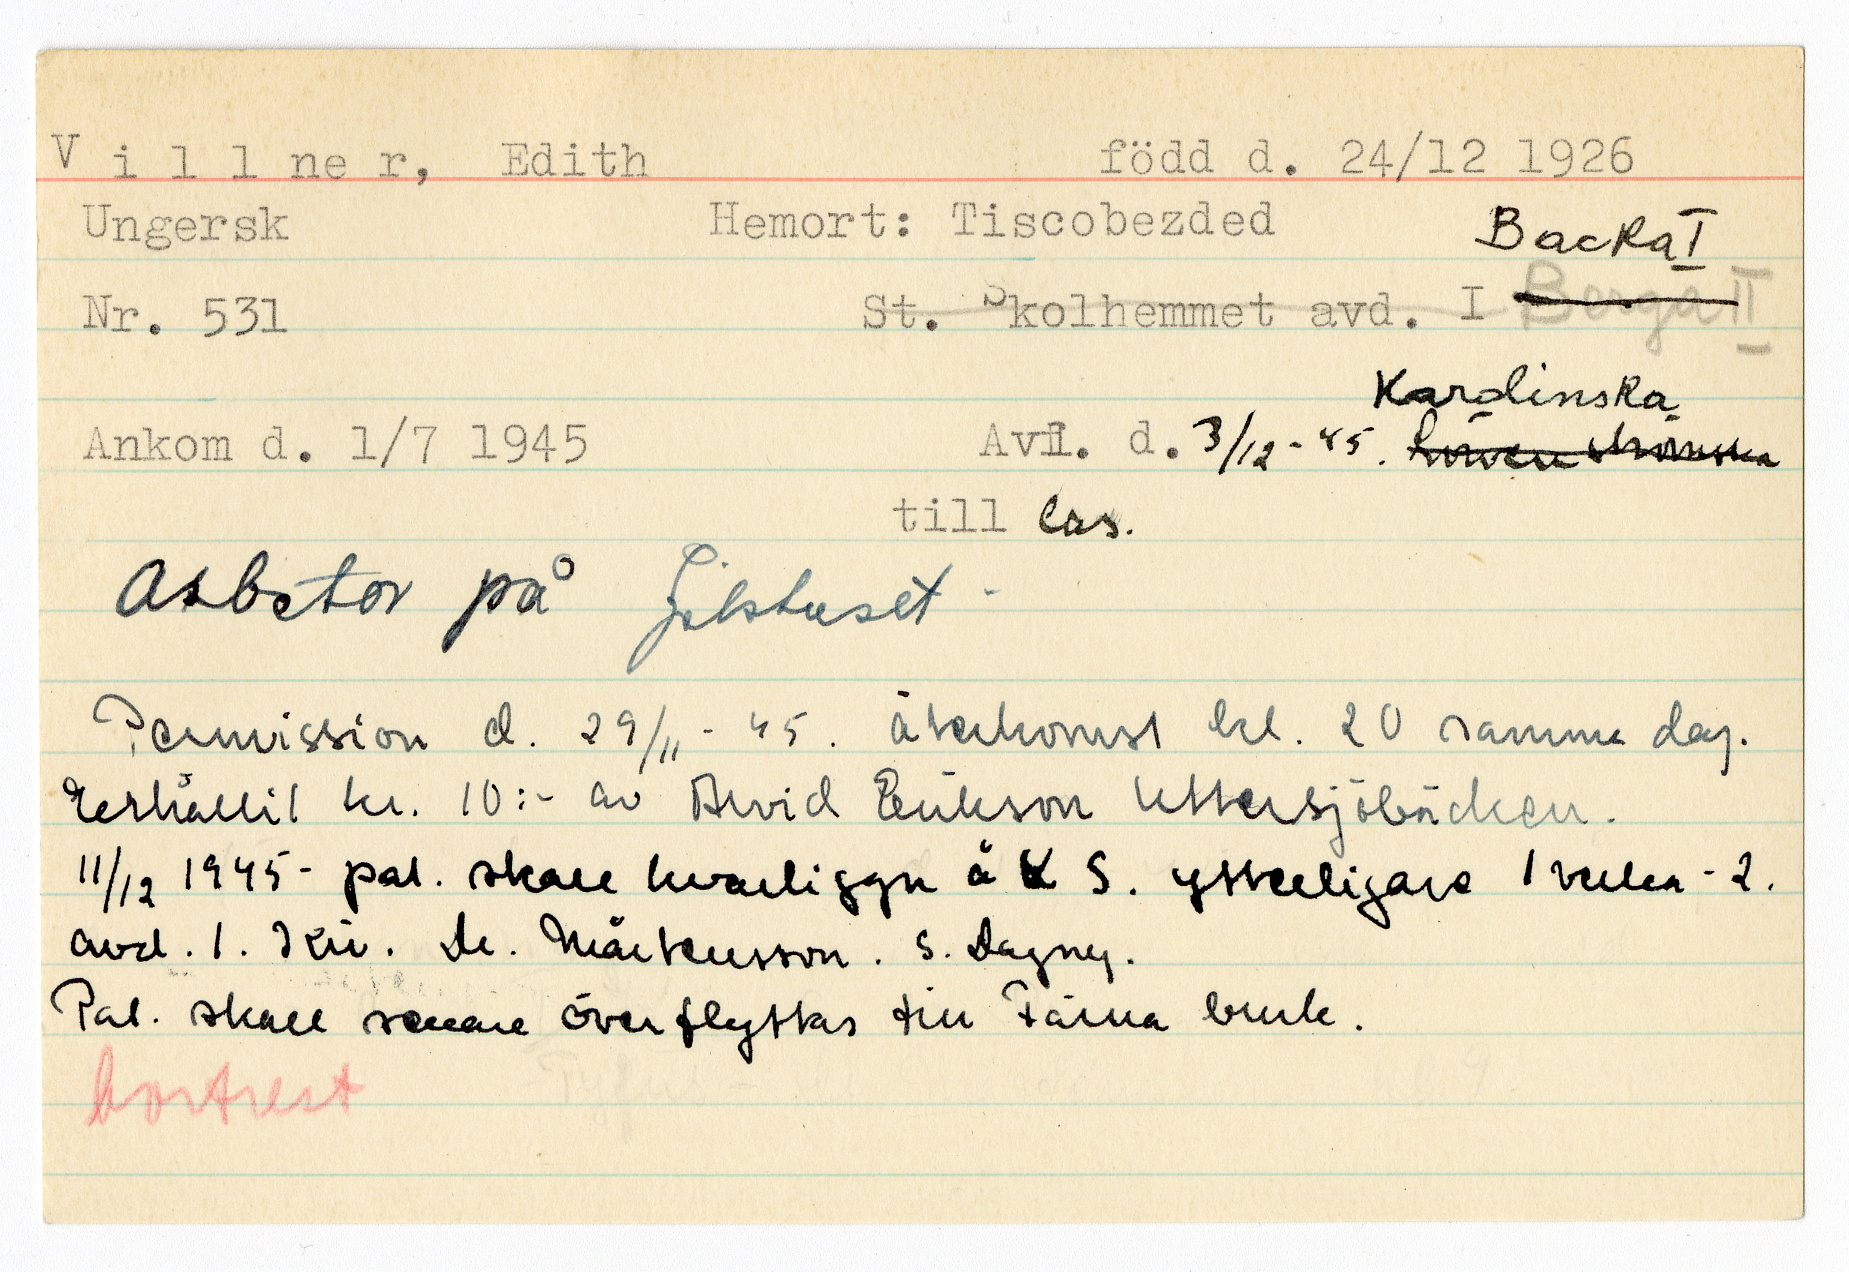 Villner, Edith född d. 24/12 1926
Ungersk Hemort: Tiscobezded Backa I
Nr. 531 St. Skolhemmet avd. I Berga II
Karolinska
Ankom d. 1/7 1945 Avfl. d. 3/12-45. Löwenströmska
till las.
Arbetar på
Permission d. 29/11-45. återkomst kl. 20 samma dag.
Erhållit kr. 10:- av Arvid Erikson Uttersjöbäcken.
11/12 1945- pat. skall kvarligga å K S. ytterligare 1 vecka-2.
avd. 1. Kir. Dr. Mårtensson. S. Dagny.
Pat. skall senare överflyttas till Färna bruk.
bortrest